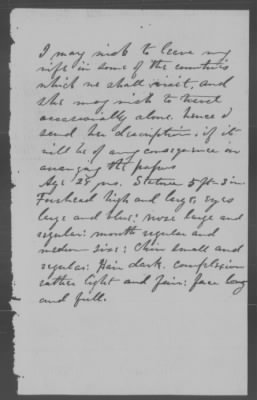 I may wish to leave my
wife in some of the countries
which we shall visit, and
she may wish to travel
occasionally alone. hence I
send her description, if it
will be of any consequence in
arranging the papers
Age 25 yrs. Stature 5 ft. 3 in
Forehead high and large, eyes
large and blue: nose large and
regular: mouth regular and
medium size: Chin small and
regular: Hair dark. complexion
rather light and fair: face long
and full.